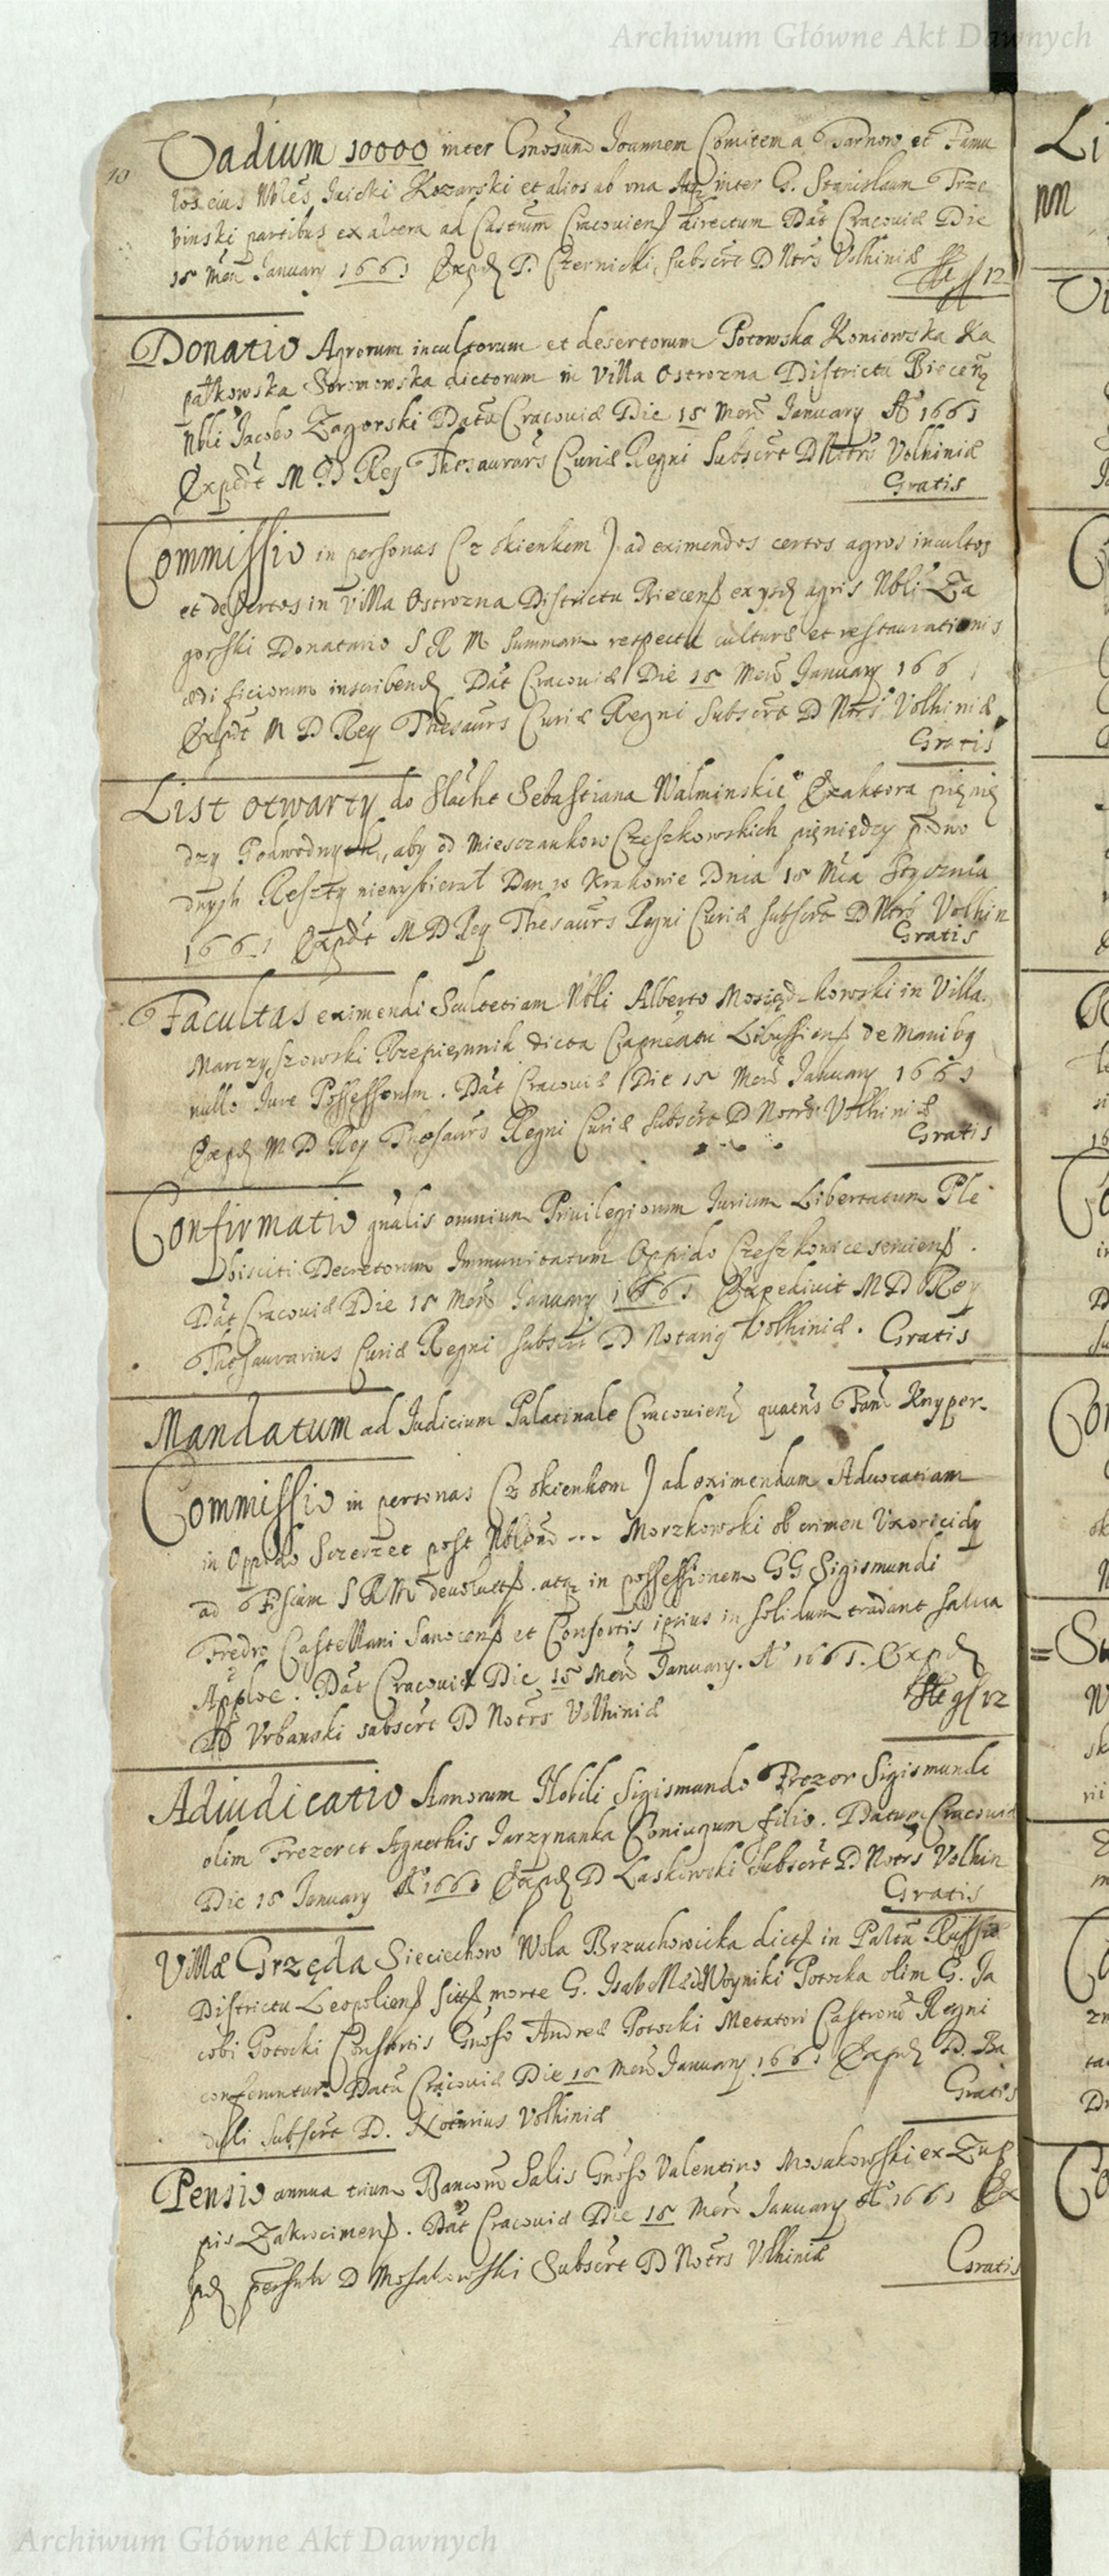 Archiwum Główne Akt Dawnych
10
Vadium 10000 inter Gnosum Joannem Comitem a Tarnow et Famu
los eius Nbles Juicki Kozarski et alios ab una Atq inter G. Stanislaum Trze
binski partibus ex altera ad Castrum Cracovien directum Dat Cracoviæ Die
18 Men January 1661 Expd D. Czernicki, subscrt D Ntrs Volhiniæ
12
Donatio Agrorum incultorum et desertorum Potowska Koniowska Ka
patkowska Soromowska dictorum in Villa Ostrozna Districtu Biecen
Nbli Jacobo Zagorski Datu Cracoviæ Die 18 Men January Ao 1661
Expdt M D Rey Thesaurars Curiæ Regni Subscrt D Notrs Volhiniæ
Gratis
Commissio in personas (z okienkem) ad eximendos certos agros incultos
et desertos in Villa Ostrozna Districtu Biecens ex ysd agris Nbli Za
gorski Donatario S R M Summam respectu culturæ et restaurationis
ædificiorum inscribend Dat Cracoviæ Die 18 Men January 166
Expdt M D Rey Thesaurs Curiæ Regni Subscrt D Ntrs Volhiniæ
Gratis
List otwarty do Slacht Sebastiana Walminskie Exaktora pięnię
dzy Podwodnych, aby od Miesczankow Czeszkowskich pięniędzy podwo
dnych Reszty niewybierał Dan w Krakowie Dnia 18 Mca Stycznia
1661 Expdt M D Rey Thesaurs Regni Curiæ subscrt D Ntrs Volhin
Gratis
Facultas eximendi Scultetiam Nbli Alberto Mosiąd-kowski in Villa
Marczyszowski Rzepiennik dicta Capneatu Libussiens de Manibq
nullo Jure Possessorum. Dat Cracoviæ Die 18 Men January 1661
Expd M D Rey Thesaurs Regni Curiæ Subscrt D Notrs Volhiniæ
Gratis
Confirmatio gnalis omnium Privilegiorum Jurium Libertatum Ple
bisciti Decretorum Immunitatum Oppido Czeszkowicesemiens.
Dat Cracoviæ Die 18 Men January 1661 Expedivit M D Rey
Thesaurarius Curiæ Regni subscrt D Notarig Volhiniæ. Gratis
Mandatum ad Judicium Palatinale Cracovien quatns Fam Knyper.
Commissio in personas (z okienkom) ad eximendam Aduocatiam
in Oppido Szerzec post Nblem --- Morzkowski ob crimen Uxoricidy
ad Fiscum S R M devoluts. atq in possessionem GG Sigismundi
Fredro Castellani Sanocens et Consortis ipsius in solidum tradant salva
Apploe. Dat Cracoviæ Die 18 Men January. Ao 1661. Expd
D Vrbanski subscrt D Notrs Volhiniæ
12
Adiudicatio Annorum Nobili Sigismundo Frezer Sigismundi
olim Frezer et Agnethis Jarzynanka Coniugum filio. Datum Cracoviæ
Die 18 January Ao 1661 Expd D Laskowski Subscrt D Notrs Volhin
Gratis
Villæ Grzęda Sieciechow Wola Brzuchowicka dicts in Paltu Russiæ
Districtu Leopoliens sits morte G. Isabellæ Woyniki Potocka olim G. Ja
cobi Potocki Consortis Gnoso Andreæ Potocki Metatori Castrorum Regni
conferuntur. Datu Cracoviæ Die 18 Men January 1661 Expd D. Ba
deli Subscrt D. Notarius Volhiniæ
Gratis
Pensio annua trium Bancorum Salis Gnoso Valentino Mosakowski ex Zup
pis Zakrocimens. Dat Cracoviæ Die 18 Men January Ao 1661 Ex
pd D Mosakowski Subscrt D Notrs Volhiniæ
Gratis
Archiwum Główne Akt Dawnych